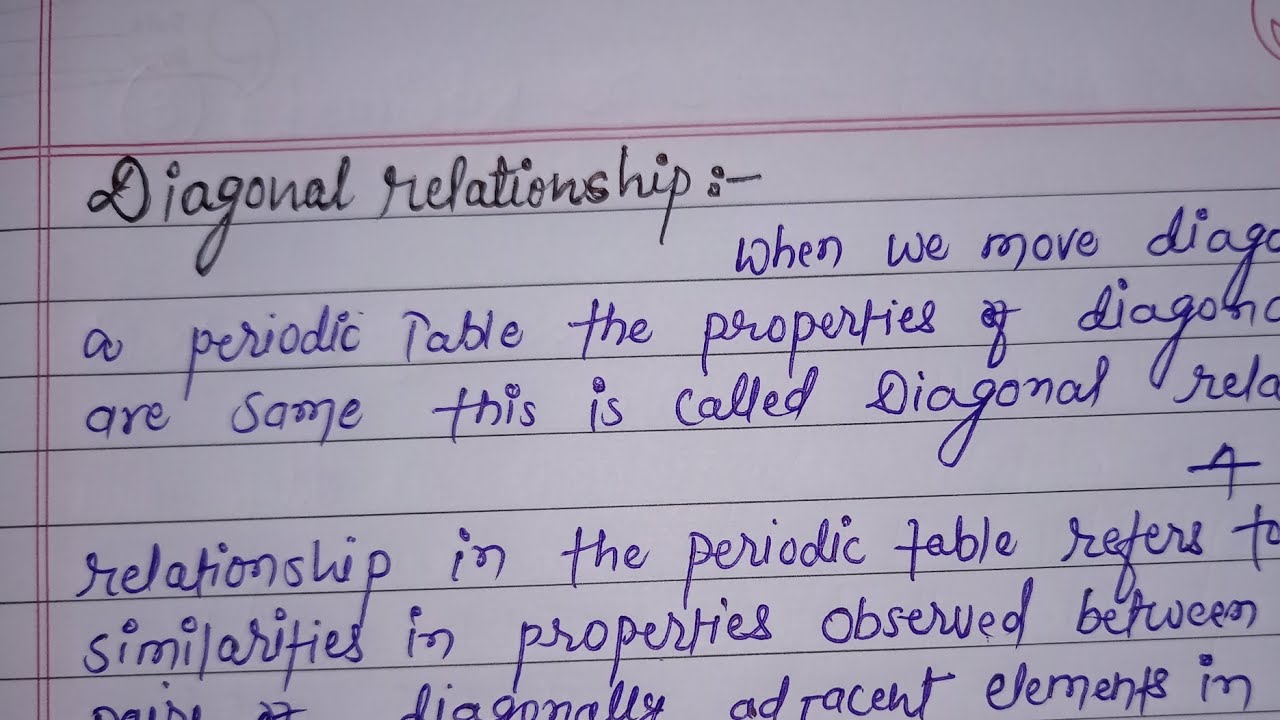 Diagonal relationship :-
When we move diago
a periodic Table the properties of diagona
are same this is called Diagonal rela
A
relationship in the periodic table refers to
similarities in properties observed between
pairs of diagonally adjacent elements in